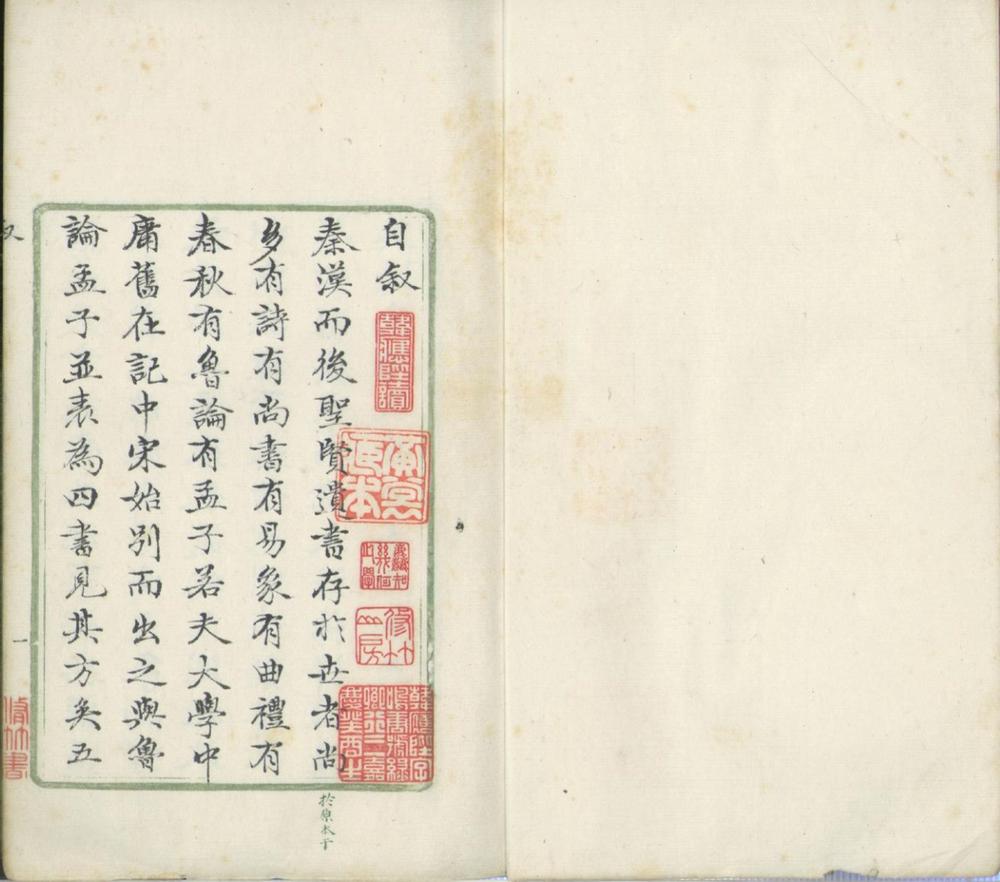 自叙
秦漢而後聖賢遺書存於世者尚
多有詩有尚書有易象有曲禮有
春秋有魯論有孟子若夫大學中
庸舊在記中宋始別而出之與魯
論孟子並表為四書見其方矣五
韓應陛讀
修竹
山房
叙
一